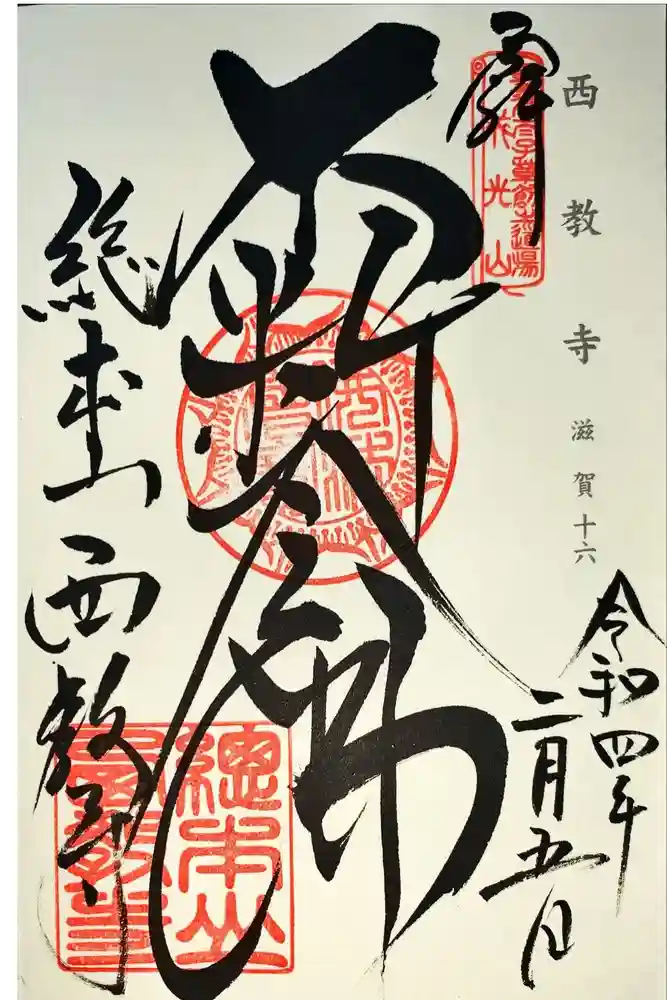 西教寺 滋賀十六
奉拝
令和四年
二月五日
不断念佛
総本山 西教寺
總本山
西教寺